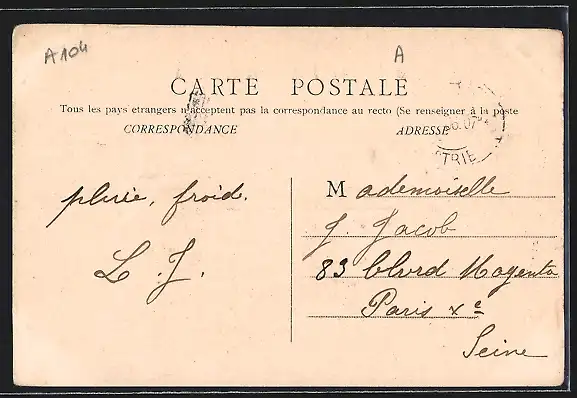 A 104
A
CARTE POSTALE
Tous les pays etrangers n'acceptent pas la correspondance au recto (Se renseigner à la poste
CORRESPONDANCE
ADRESSE
07
TRIE
pluie, froid.
L. J.
Mademoiselle
J. Jacob
83 blvrd Magenta
Paris Xe
Seine